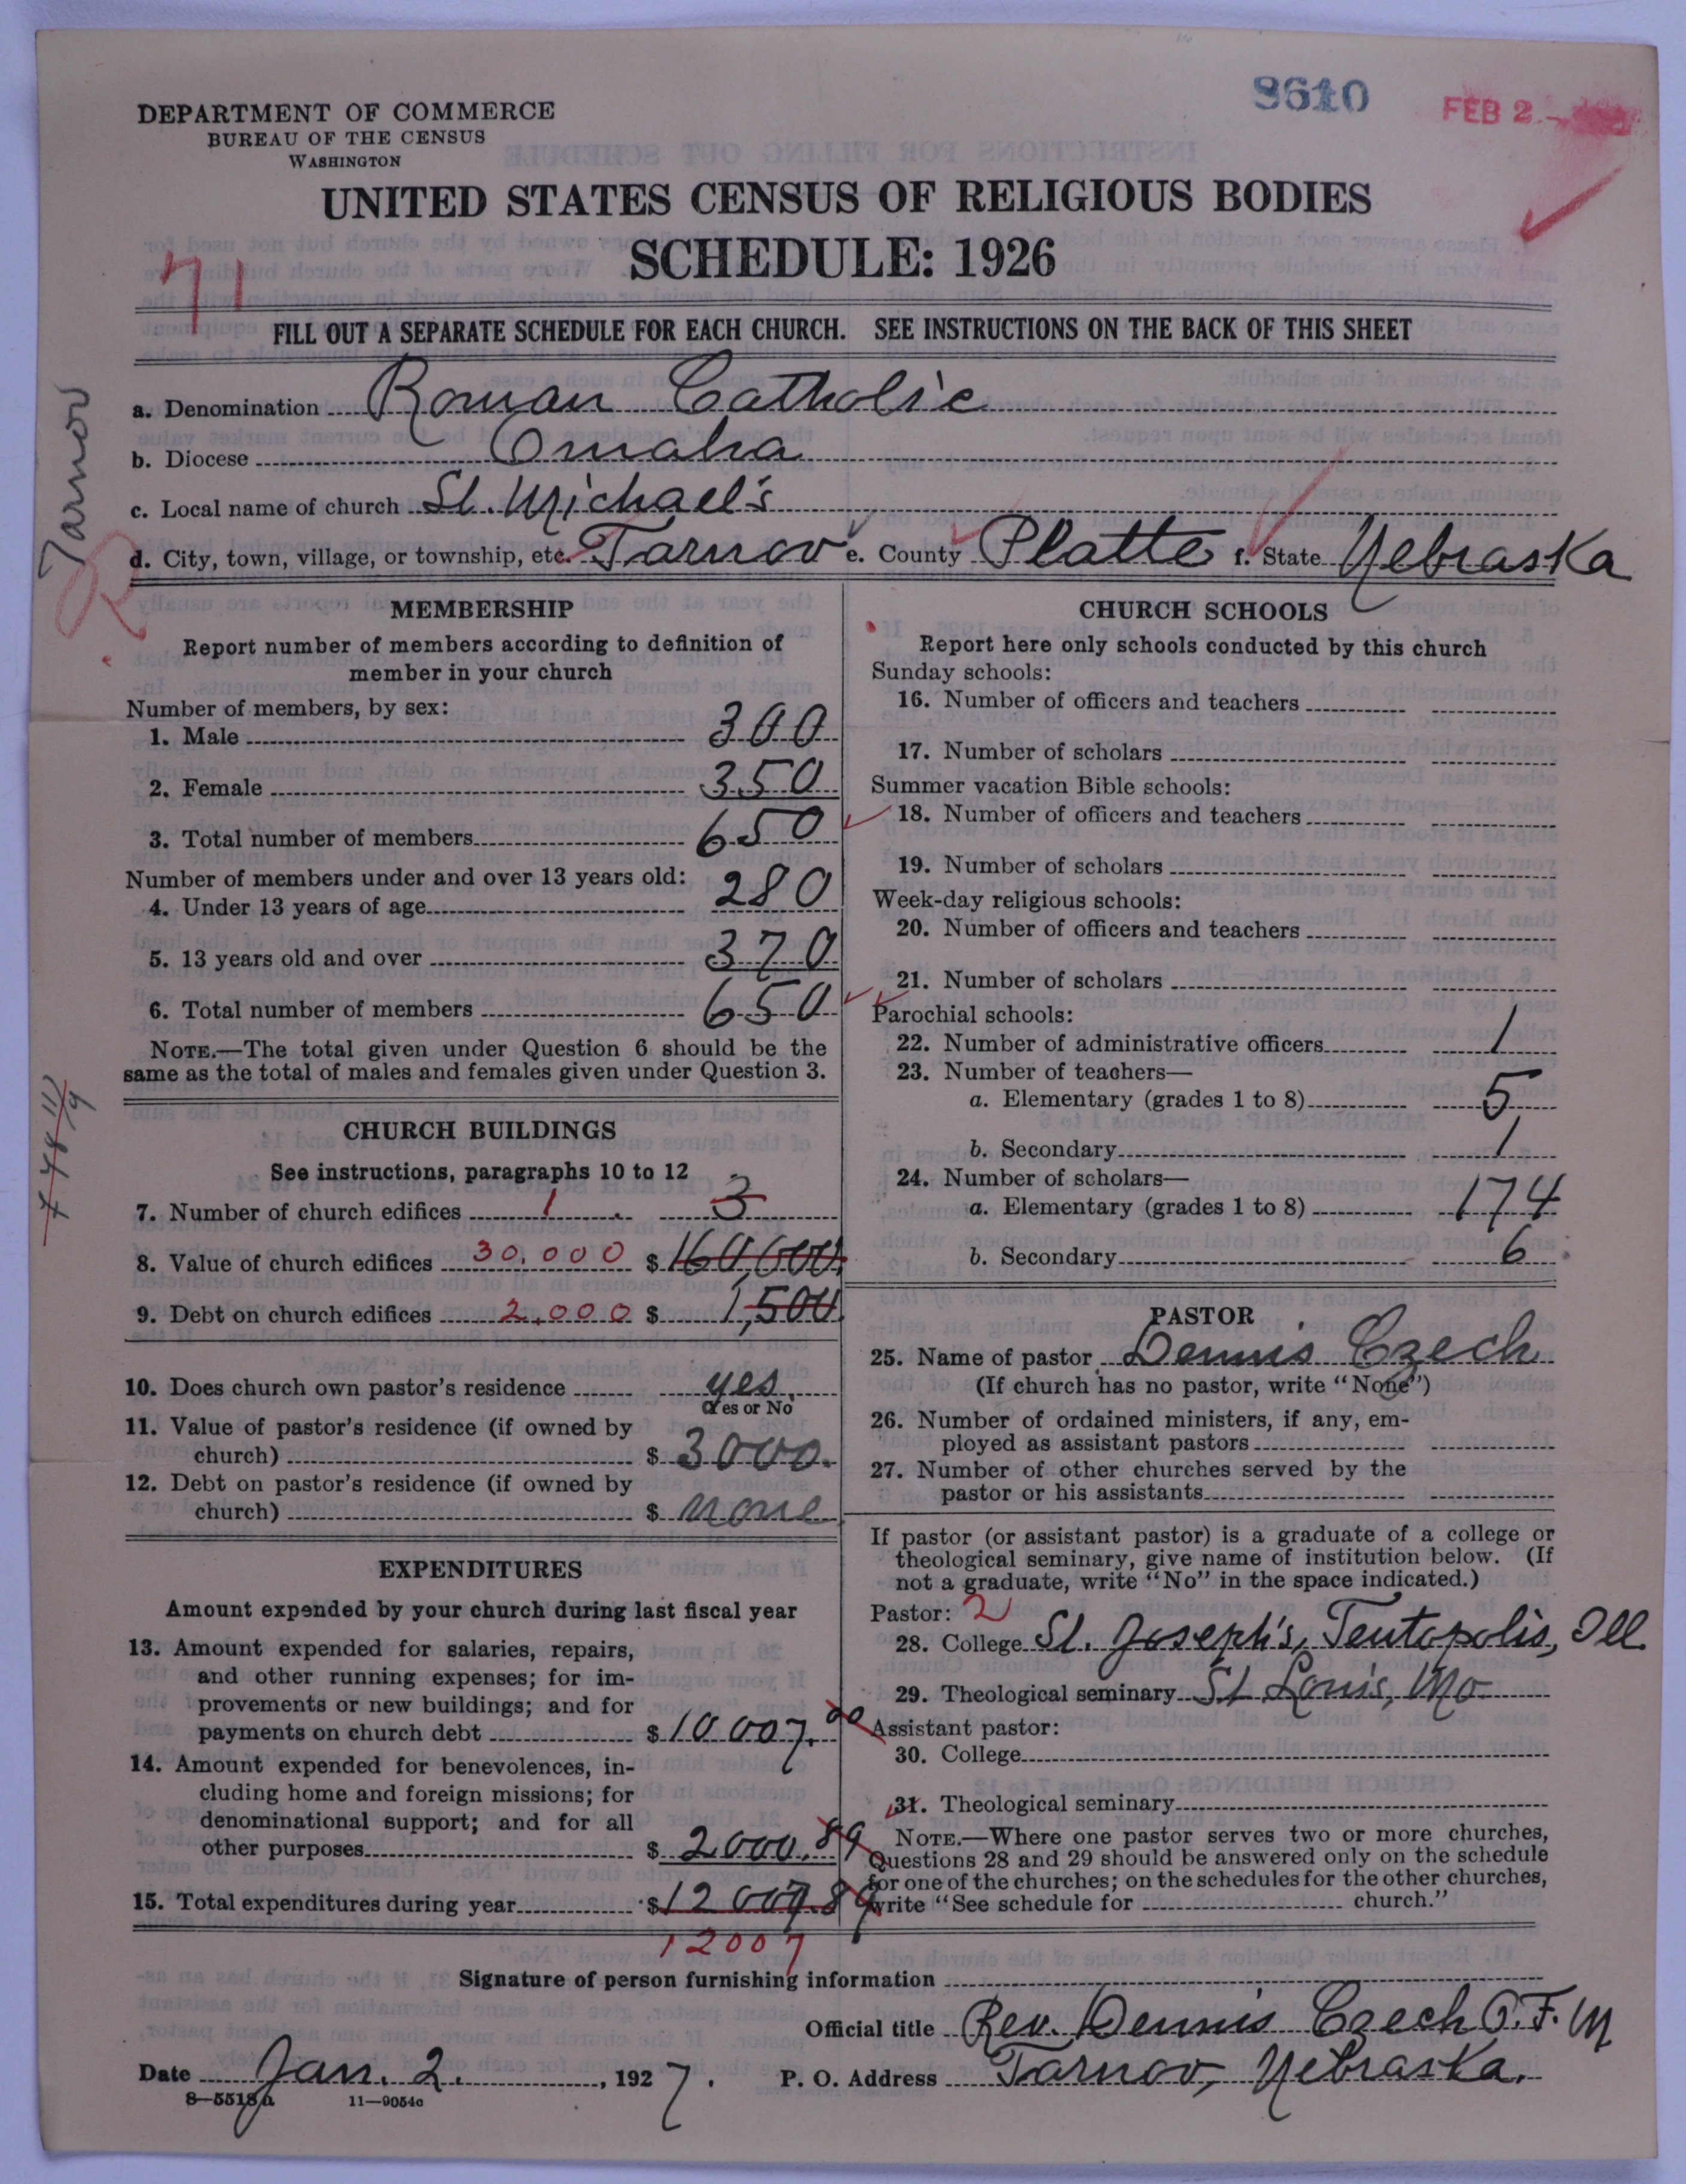 8610
FEB 2
DEPARTMENT OF COMMERCE
BUREAU OF THE CENSUS
WASHINGTON
UNITED STATES CENSUS OF RELIGIOUS BODIES
SCHEDULE: 1926
71
FILL OUT A SEPARATE SCHEDULE FOR EACH CHURCH. SEE INSTRUCTIONS ON THE BACK OF THIS SHEET
Tarnov
a. Denomination Roman Catholic
b. Diocese Omaha
c. Local name of church St. Michael's
d. City, town, village, or township, etc. Tarnov e. County Platte f. State Nebraska
MEMBERSHIP
Report number of members according to definition of
member in your church
Number of members, by sex:
1. Male 300
2. Female 350
3. Total number of members 650
Number of members under and over 13 years old:
4. Under 13 years of age 280
5. 13 years old and over 370
6. Total number of members 650
NOTE.—The total given under Question 6 should be the
same as the total of males and females given under Question 3.
CHURCH BUILDINGS
See instructions, paragraphs 10 to 12
7. Number of church edifices 1 3
8. Value of church edifices 30,000 $ 160,000
9. Debt on church edifices 2,000 $ 1,500
10. Does church own pastor's residence yes.
Yes or No
11. Value of pastor's residence (if owned by
church) $ 3000.
12. Debt on pastor's residence (if owned by
church) $ none
EXPENDITURES
Amount expended by your church during last fiscal year
13. Amount expended for salaries, repairs,
and other running expenses; for im-
provements or new buildings; and for
payments on church debt $ 10 007.00
14. Amount expended for benevolences, in-
cluding home and foreign missions; for
denominational support; and for all
other purposes $ 2000.89
15. Total expenditures during year $ 12 007.89
12007
CHURCH SCHOOLS
Report here only schools conducted by this church
Sunday schools:
16. Number of officers and teachers
17. Number of scholars
Summer vacation Bible schools:
18. Number of officers and teachers
19. Number of scholars
Week-day religious schools:
20. Number of officers and teachers
21. Number of scholars
Parochial schools:
22. Number of administrative officers 1
23. Number of teachers—
a. Elementary (grades 1 to 8) 5
b. Secondary 1
24. Number of scholars—
a. Elementary (grades 1 to 8) 174
b. Secondary 6
PASTOR
25. Name of pastor Dennis Czech
(If church has no pastor, write "None")
26. Number of ordained ministers, if any, em-
ployed as assistant pastors
27. Number of other churches served by the
pastor or his assistants
If pastor (or assistant pastor) is a graduate of a college or
theological seminary, give name of institution below. (If
not a graduate, write "No" in the space indicated.)
Pastor: 2
28. College St. Joseph's, Teutopolis, Ill
29. Theological seminary St Louis, Mo
Assistant pastor:
30. College
31. Theological seminary
NOTE.—Where one pastor serves two or more churches,
Questions 28 and 29 should be answered only on the schedule
for one of the churches; on the schedules for the other churches,
write "See schedule for church."
Signature of person furnishing information
Official title Rev. Dennis Czech O.F.M
Date Jan. 2. , 1927. P. O. Address Tarnov, Nebraska.
8—5518a 11—9054c